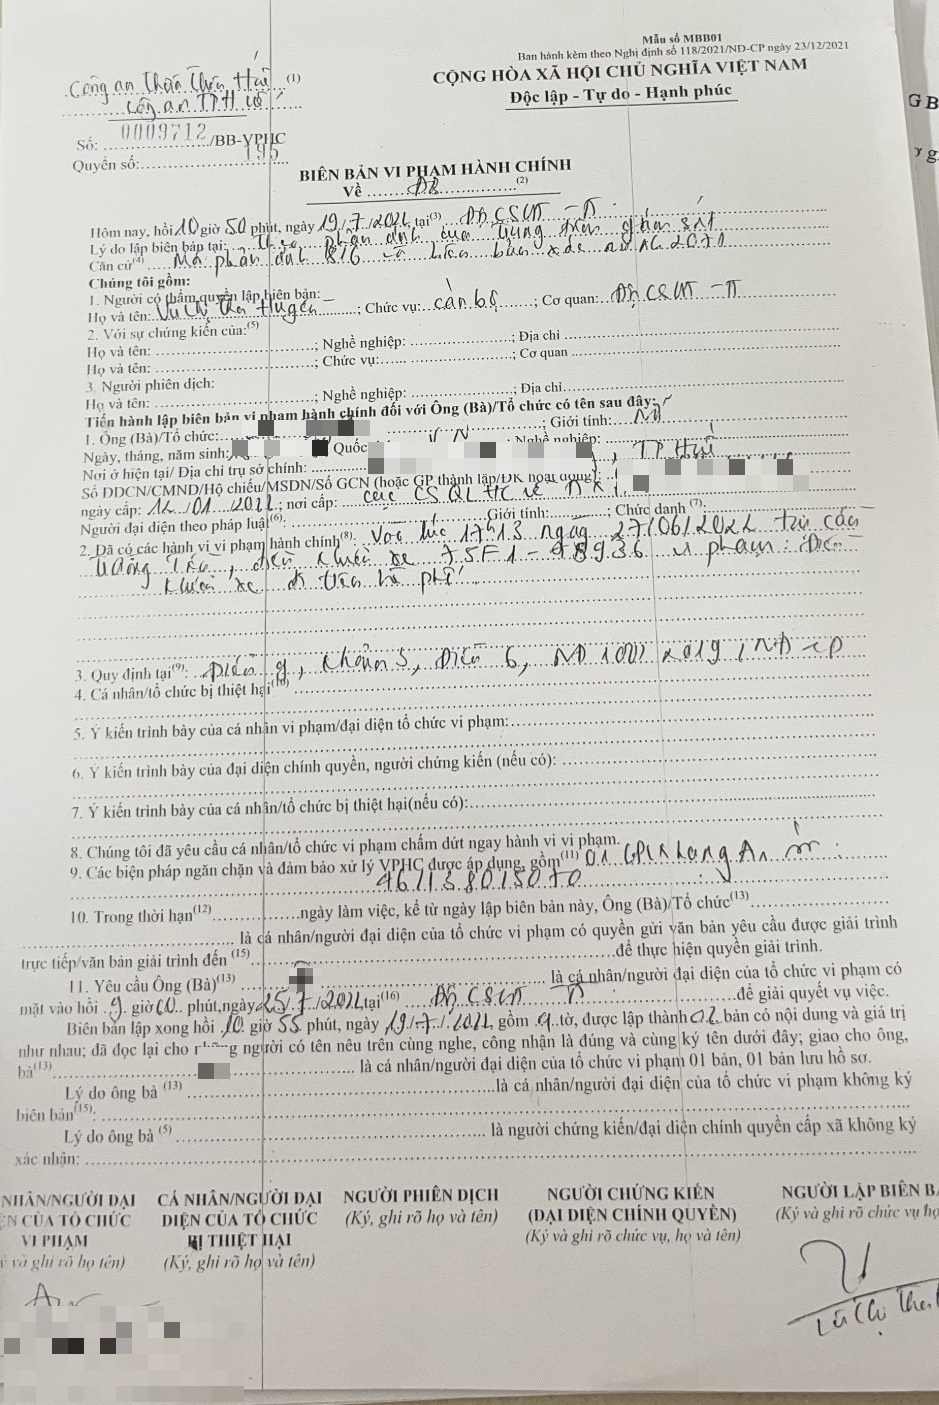 Mẫu số MBB01
Ban hành kèm theo Nghị định số 118/2021/NĐ-CP ngày 23/12/2021
CỘNG HÒA XÃ HỘI CHỦ NGHĨA VIỆT NAM
Độc lập - Tự do - Hạnh phúc
Công an Thừa Thiên Huế (1)
Công an TP Huế
Số: 0009712 /BB-VPHC
Quyển số: 195
BIÊN BẢN VI PHẠM HÀNH CHÍNH
Về ĐB (2)
Hôm nay, hồi 10 giờ 50 phút, ngày 19/7/2022 tại(3) Đội CSGT - TT
Lý do lập biên bản tại: Theo phản ánh của Trung tâm giám sát
Căn cứ(4) Mã phản ánh 816 và biên bản
Chúng tôi gồm:
1. Người có thẩm quyền lập biên bản:
Họ và tên: ; Chức vụ: cán bộ ; Cơ quan: Đội CSGT - TT
2. Với sự chứng kiến của:(5)
Họ và tên: ; Nghề nghiệp: ; Địa chỉ
Họ và tên: ; Chức vụ: ; Cơ quan
3. Người phiên dịch:
Họ và tên: ; Nghề nghiệp: ; Địa chỉ
Tiến hành lập biên bản vi phạm hành chính đối với Ông (Bà)/Tổ chức có tên sau đây:
1. Ông (Bà)/Tổ chức: ; Giới tính: Nữ
Ngày, tháng, năm sinh: Quốc VN ; Nghề nghiệp:
Nơi ở hiện tại/ Địa chỉ trụ sở chính: , TP Huế
Số ĐDCN/CMND/Hộ chiếu/MSDN/Số GCN (hoặc GP thành lập/ĐK hoạt động):
ngày cấp: 12/01/2022; nơi cấp: Cục CS QLHC về TTXH
Người đại diện theo pháp luật(6): ; Giới tính: ; Chức danh (7):
2. Đã có các hành vi vi phạm hành chính(8): Vào lúc 17h13 ngày 27/06/2022 từ cầu
Trường Tiền, điều khiển xe 75F1- vi phạm: Điều
khiển xe đi trên hè phố
3. Quy định tại(9): Điểm g, khoản 5, Điều 6, NĐ 100/2019/NĐ-CP
4. Cá nhân/tổ chức bị thiệt hại(10)
5. Ý kiến trình bày của cá nhân vi phạm/đại diện tổ chức vi phạm:
6. Ý kiến trình bày của đại diện chính quyền, người chứng kiến (nếu có):
7. Ý kiến trình bày của cá nhân/tổ chức bị thiệt hại(nếu có):
8. Chúng tôi đã yêu cầu cá nhân/tổ chức vi phạm chấm dứt ngay hành vi vi phạm.
9. Các biện pháp ngăn chặn và đảm bảo xử lý VPHC được áp dụng, gồm(11) 01 GPLX hạng A1 số:
461138015070
10. Trong thời hạn(12) ngày làm việc, kể từ ngày lập biên bản này, Ông (Bà)/Tổ chức(13)
là cá nhân/người đại diện của tổ chức vi phạm có quyền gửi văn bản yêu cầu được giải trình
trực tiếp/văn bản giải trình đến (15) để thực hiện quyền giải trình.
11. Yêu cầu Ông (Bà)(13) là cá nhân/người đại diện của tổ chức vi phạm có
mặt vào hồi 9 giờ 00 phút, ngày 25/7/2022 tại(16) Đội CSGT - TT để giải quyết vụ việc.
Biên bản lập xong hồi 10 giờ 55 phút, ngày 19/7/2022, gồm 01 tờ, được lập thành 02 bản có nội dung và giá trị
như nhau; đã đọc lại cho những người có tên nêu trên cùng nghe, công nhận là đúng và cùng ký tên dưới đây; giao cho ông,
bà(13) là cá nhân/người đại diện của tổ chức vi phạm 01 bản, 01 bản lưu hồ sơ.
Lý do ông bà (13) là cá nhân/người đại diện của tổ chức vi phạm không ký
biên bản(15):
Lý do ông bà (5) là người chứng kiến/đại diện chính quyền cấp xã không ký
xác nhận:
NHÂN/NGƯỜI ĐẠI CÁ NHÂN/NGƯỜI ĐẠI NGƯỜI PHIÊN DỊCH NGƯỜI CHỨNG KIẾN NGƯỜI LẬP BIÊN BẢ
ỆN CỦA TỔ CHỨC DIỆN CỦA TỔ CHỨC (Ký, ghi rõ họ và tên) (ĐẠI DIỆN CHÍNH QUYỀN) (Ký và ghi rõ chức vụ họ
VI PHẠM BỊ THIỆT HẠI (Ký và ghi rõ chức vụ, họ và tên)
ý và ghi rõ họ tên) (Ký, ghi rõ họ và tên)